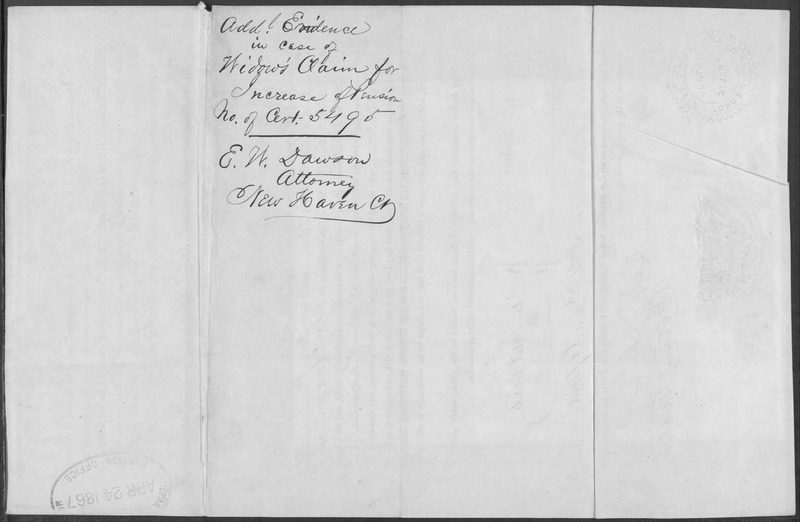 Addl. Evidence
in case of
Widow's Claim for
Increase of Pension
No. of Cert. 5495
E. W. Dawson
Attorney
New Haven Ct
PENSION OFFICE
APR 24 1867